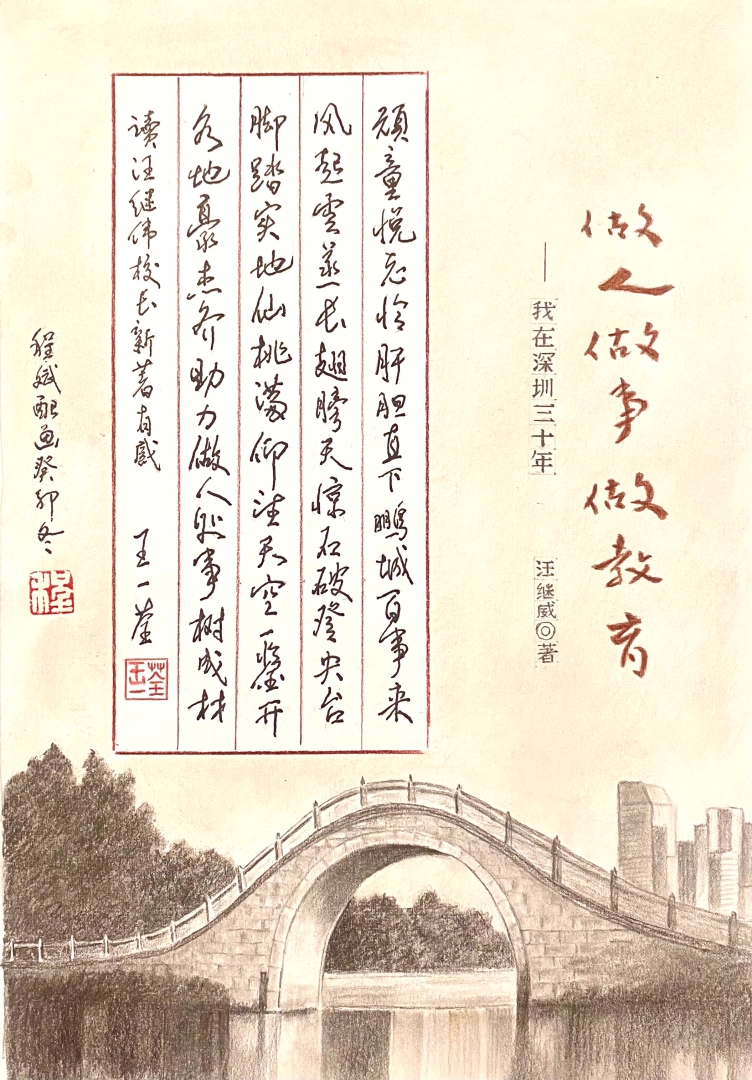 做人做事做教育
——我在深圳三十年
汪继威◎著
顽童悦志怜肝胆直下鹏城百事来
风起雲蒸长翅膀天惊石破登央台
脚踏实地仙桃满仰望天空一鑑开
各地豪杰齐助力做人做事树成材
讀汪继伟校长新著有感 王一荃
程斌配画癸卯冬